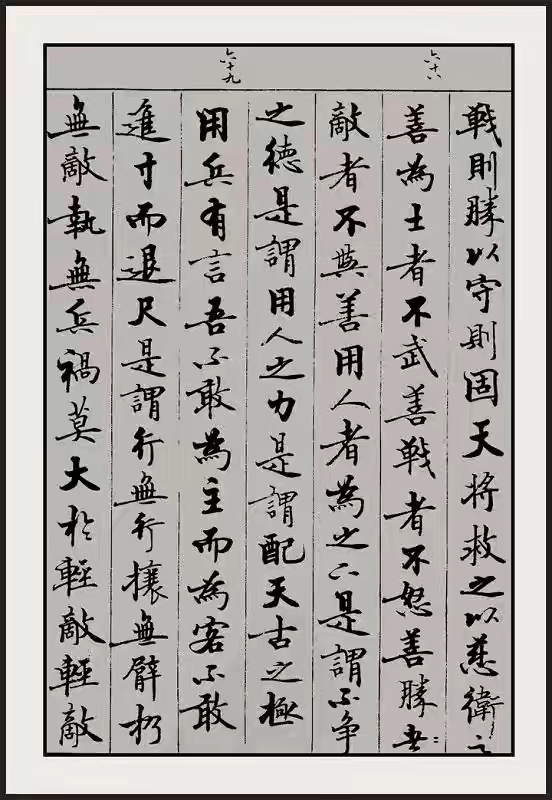 戰則勝以守則固天將救之以慈衛之
六十八
善為士者不武善戰者不怒善勝
敵者不與善用人者為之下是謂不爭
之德是謂用人之力是謂配天古之極
六十九
用兵有言吾不敢為主而為客不敢
進寸而退尺是謂行無行攘無臂扔
無敵執無兵禍莫大於輕敵輕敵